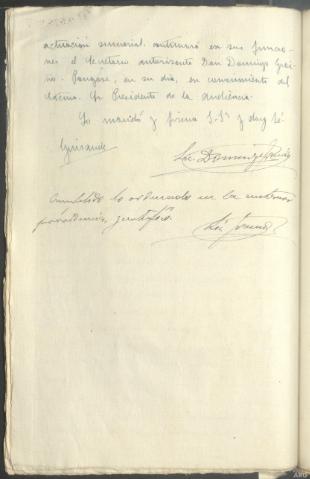 actuación sumarial. continuará en sus funcio-
nes el Secretario autorizante Don Domingo
Póngase, en su día, en conocimiento del
Presidente de la Audiencia.
Lo mandó y firma S.Sª y doy fé
Lic. Domingo
Cumplido lo ordenado en la anterior
providencia, certifico.